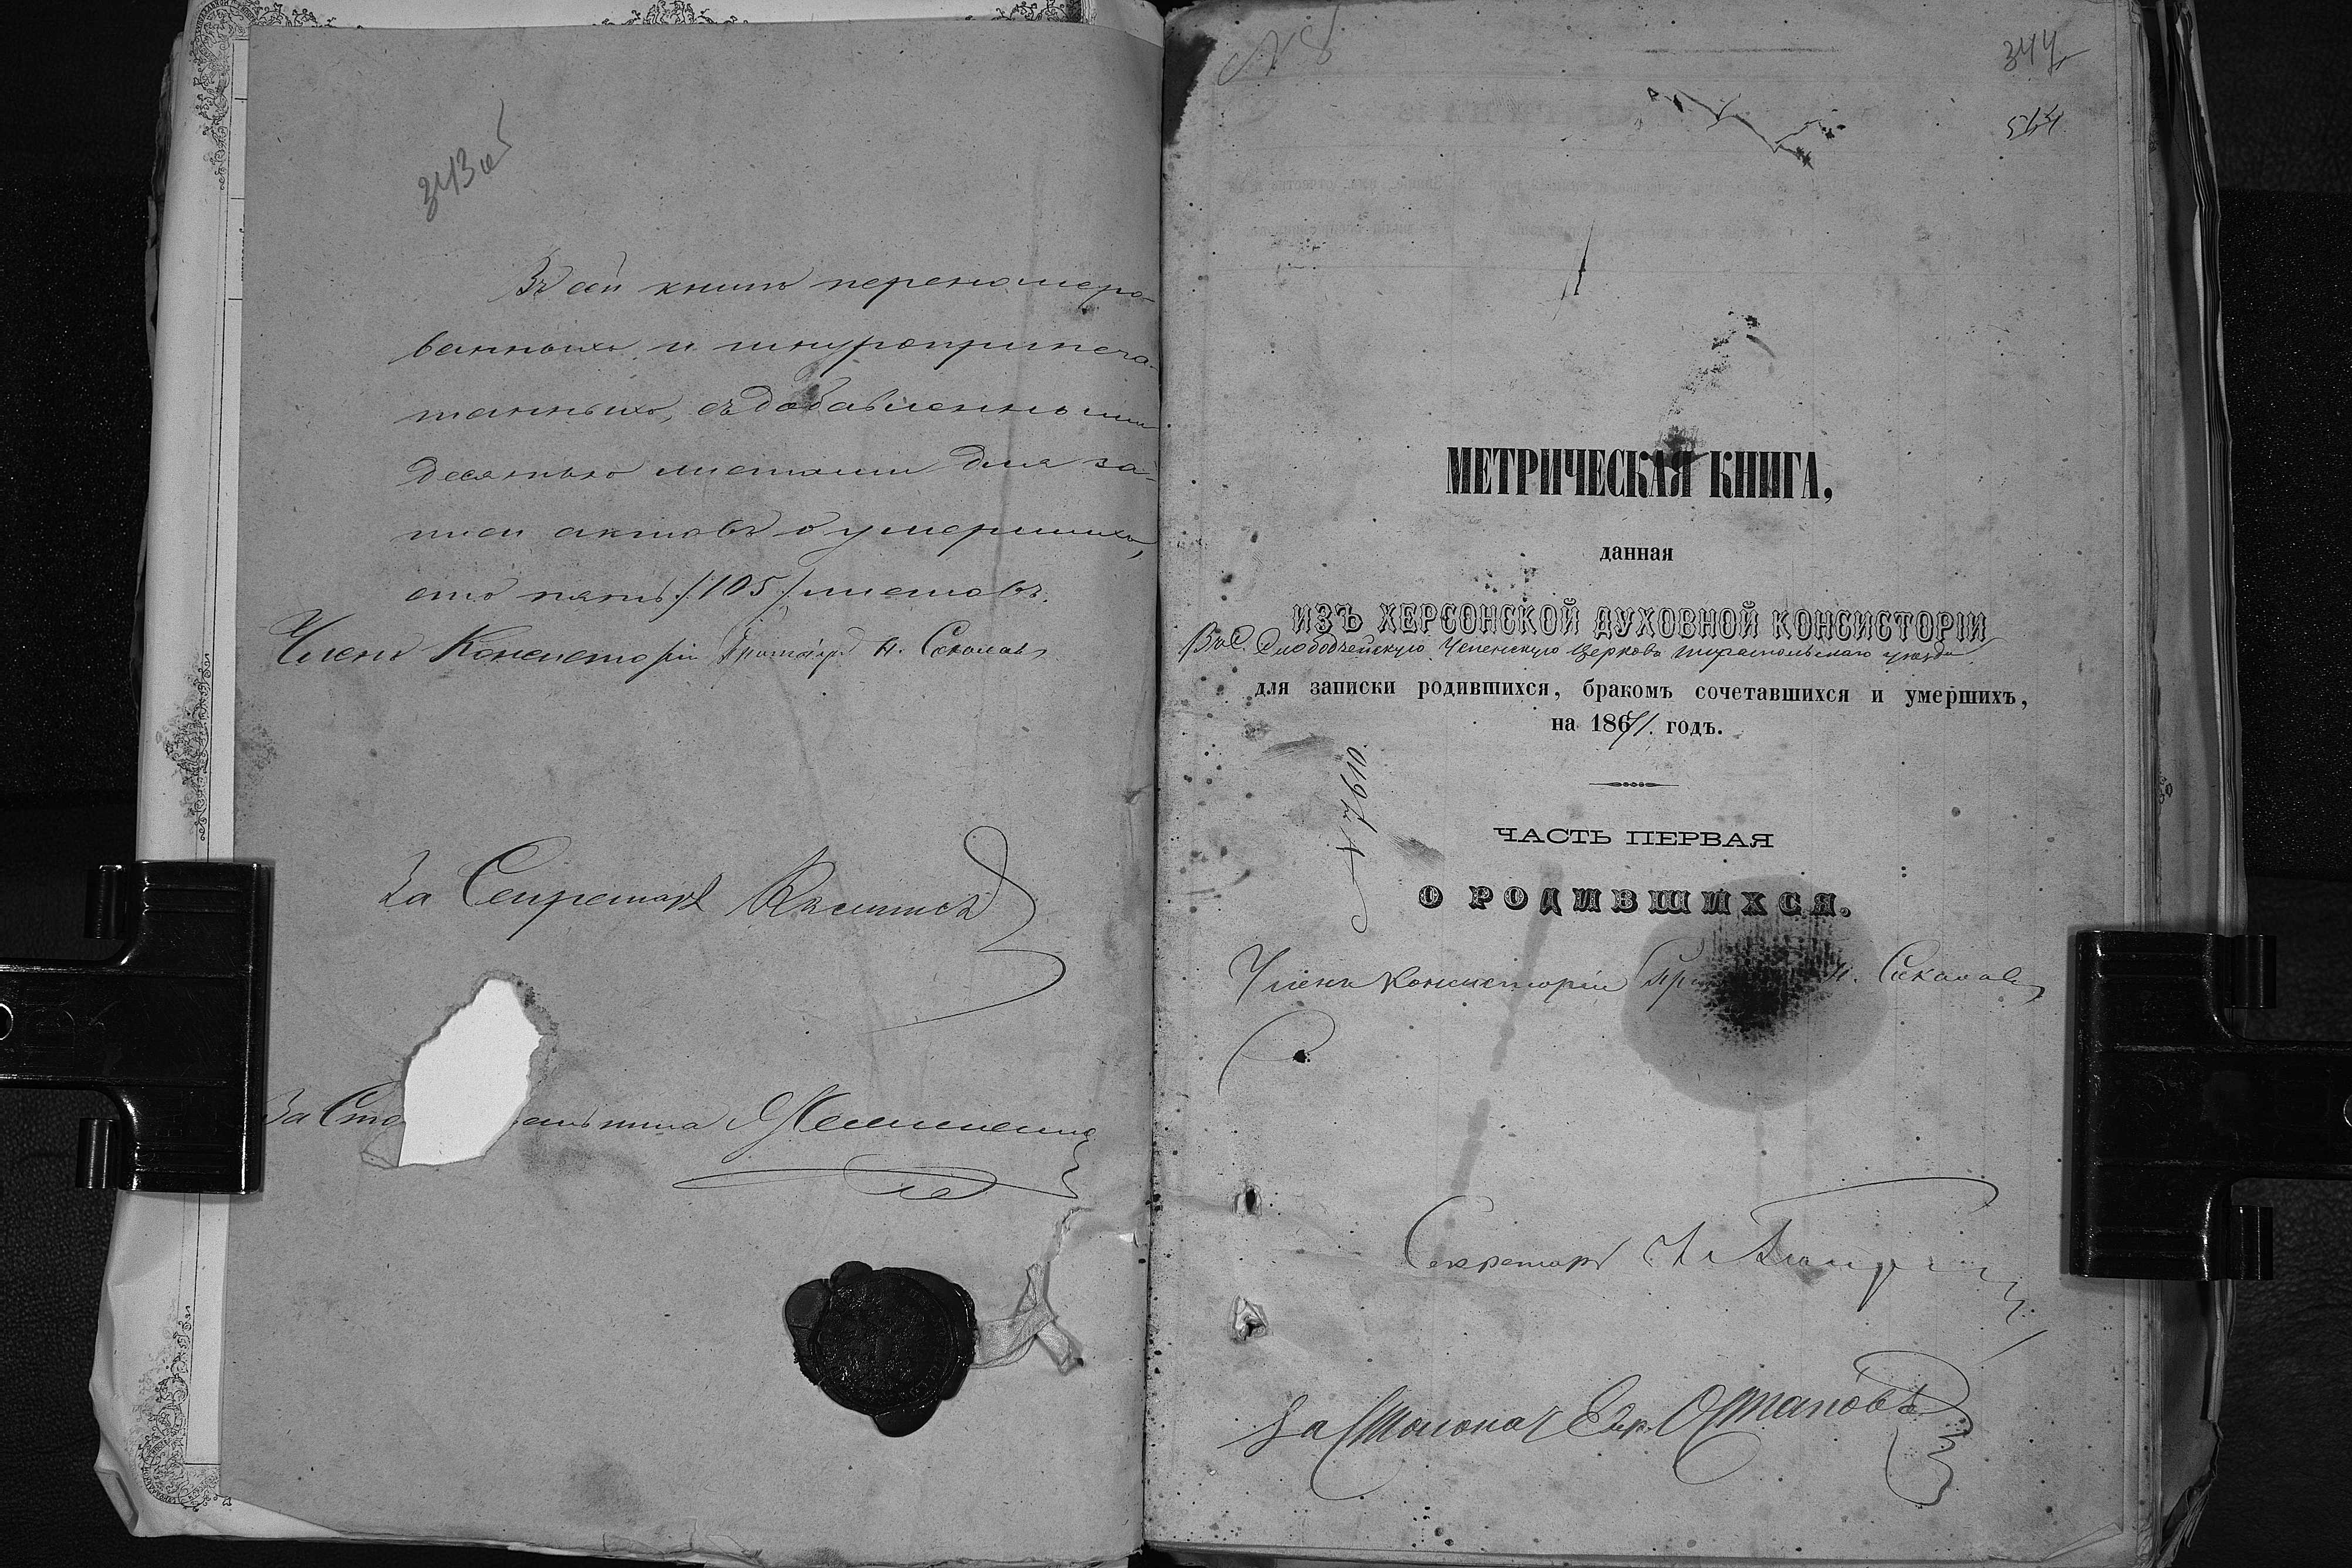 343 об
Въ сей книге перенумеро-
ванныхъ и шнуропринеча-
танныхъ, съ добавленными
десятью листами для за-
писи актовъ о умершихъ,
сто пять /105/ листовъ.
Членъ Консисторіи Протоіер. Н. Соколовъ
За Секретаря
За Сто
№ 8
344
МЕТРИЧЕСКАЯ КНИГА,
данная
ИЗЪ ХЕРСОНСКОЙ ДУХОВНОЙ КОНСИСТОРІИ
Въ С. Слободзейскую Успенскую Церковь Тираспольскаго уезда
для записки родившихся, бракомъ сочетавшихся и умершихъ,
на 1871 годъ.
№ 7610
ЧАСТЬ ПЕРВАЯ
О РОДИВШИХСЯ.
Членъ Консисторіи Н. Соколовъ
Секретарь
За Столонач. Остаповъ